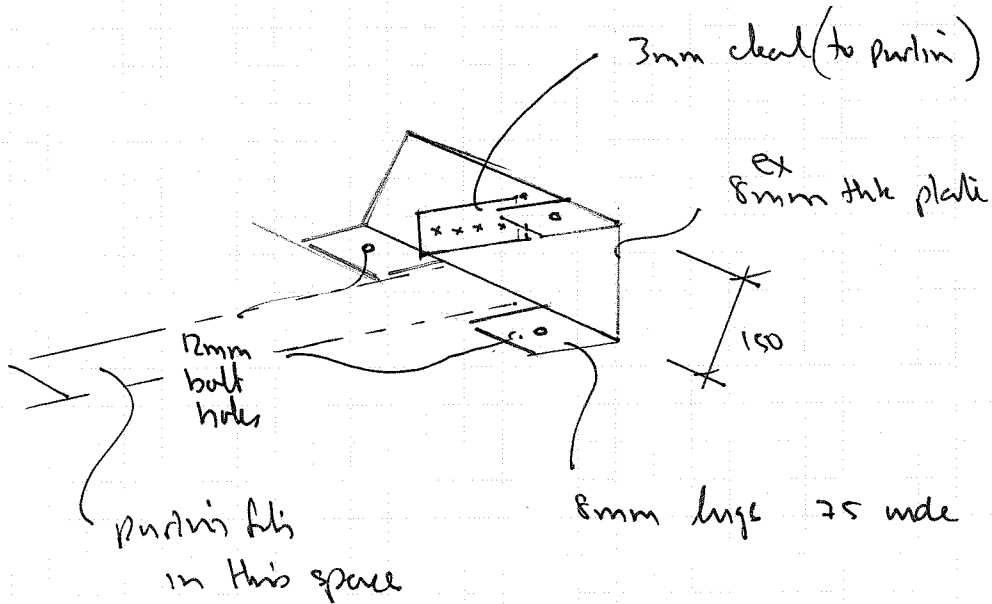 3mm cleat (to purlin)
ex
8mm thk plate
150
12mm
bolt
holes
8mm lugs 75 wide
purlin fits
in this space